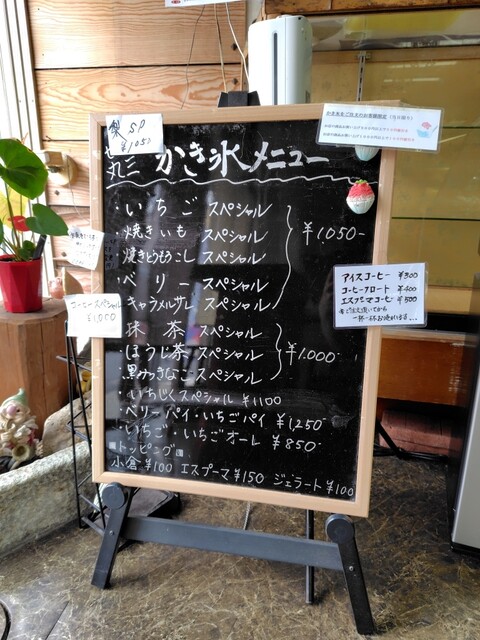 梨 SP
¥1050
丸三 かき氷メニュー
・いちご スペシャル
・焼きいも スペシャル
・焼きとうもろこし スペシャル
・ベリー スペシャル
・キャラメルサレ スペシャル
¥1,050-
・抹茶 スペシャル
・ほうじ茶 スペシャル
・黒みつきなこ スペシャル
¥1.000-
・いちじくスペシャル ¥1100
・ベリーパイ・いちごパイ ¥1,250-
・いちご・いちごオーレ ¥850-
トッピング
小倉 ¥100 エスプーマ ¥150 ジェラート ¥100
コーヒースペシャル
¥1,000
アイスコーヒー ¥300
コーヒーフロート ¥400
エスプーマコーヒー ¥500